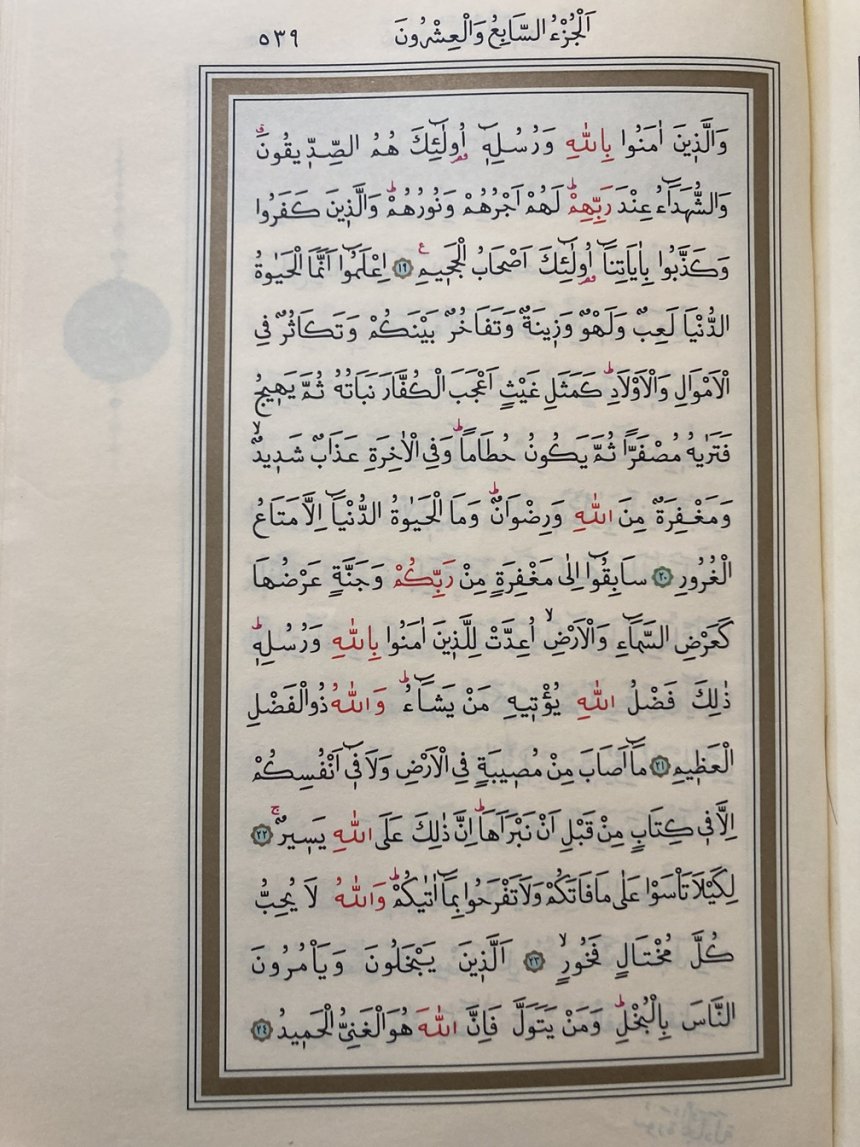 اَلْجُزْءُ السَّابِعُ وَالْعِشْرُونَ
٥٣٩
وَالَّذ۪ينَ اٰمَنُوا بِاللّٰهِ وَرُسُلِه۪ٓ اُو۬لٰٓئِكَ هُمُ الصِّدّ۪يقُونَۗ
وَالشُّهَدَٓاءُ عِنْدَ رَبِّهِمْۜ لَهُمْ اَجْرُهُمْ وَنُورُهُمْۜ وَالَّذ۪ينَ كَفَرُوا
وَكَذَّبُوا بِاٰيَاتِنَٓا اُو۬لٰٓئِكَ اَصْحَابُ الْجَح۪يمِ۟ ﴿١٩﴾ اِعْلَمُٓوا اَنَّمَا الْحَيٰوةُ
الدُّنْيَا لَعِبٌ وَلَهْوٌ وَز۪ينَةٌ وَتَفَاخُرٌ بَيْنَكُمْ وَتَكَاثُرٌ فِي
الْاَمْوَالِ وَالْاَوْلَادِۜ كَمَثَلِ غَيْثٍ اَعْجَبَ الْكُفَّارَ نَبَاتُهُ ثُمَّ يَه۪يجُ
فَتَرٰيهُ مُصْفَرًّا ثُمَّ يَكُونُ حُطَامًاۜ وَفِي الْاٰخِرَةِ عَذَابٌ شَد۪يدٌۙ
وَمَغْفِرَةٌ مِنَ اللّٰهِ وَرِضْوَانٌۜ وَمَا الْحَيٰوةُ الدُّنْيَٓا اِلَّا مَتَاعُ
الْغُرُورِ ﴿٢٠﴾ سَابِقُٓوا اِلٰى مَغْفِرَةٍ مِنْ رَبِّكُمْ وَجَنَّةٍ عَرْضُهَا
كَعَرْضِ السَّمَٓاءِ وَالْاَرْضِۙ اُعِدَّتْ لِلَّذ۪ينَ اٰمَنُوا بِاللّٰهِ وَرُسُلِه۪ۜ
ذٰلِكَ فَضْلُ اللّٰهِ يُؤْت۪يهِ مَنْ يَشَٓاءُۜ وَاللّٰهُ ذُو الْفَضْلِ
الْعَظ۪يمِ ﴿٢١﴾ مَٓا اَصَابَ مِنْ مُص۪يبَةٍ فِي الْاَرْضِ وَلَا ف۪ٓي اَنْفُسِكُمْ
اِلَّا ف۪ي كِتَابٍ مِنْ قَبْلِ اَنْ نَبْرَاَهَاۜ اِنَّ ذٰلِكَ عَلَى اللّٰهِ يَس۪يرٌۚ ﴿٢٢﴾
لِكَيْلَا تَأْسَوْا عَلٰى مَا فَاتَكُمْ وَلَا تَفْرَحُوا بِمَٓا اٰتٰيكُمْۜ وَاللّٰهُ لَا يُحِبُّ
كُلَّ مُخْتَالٍ فَخُورٍۙ ﴿٢٣﴾ اَلَّذ۪ينَ يَبْخَلُونَ وَيَأْمُرُونَ
النَّاسَ بِالْبُخْلِۜ وَمَنْ يَتَوَلَّ فَاِنَّ اللّٰهَ هُوَ الْغَنِيُّ الْحَم۪يدُ ﴿٢٤﴾